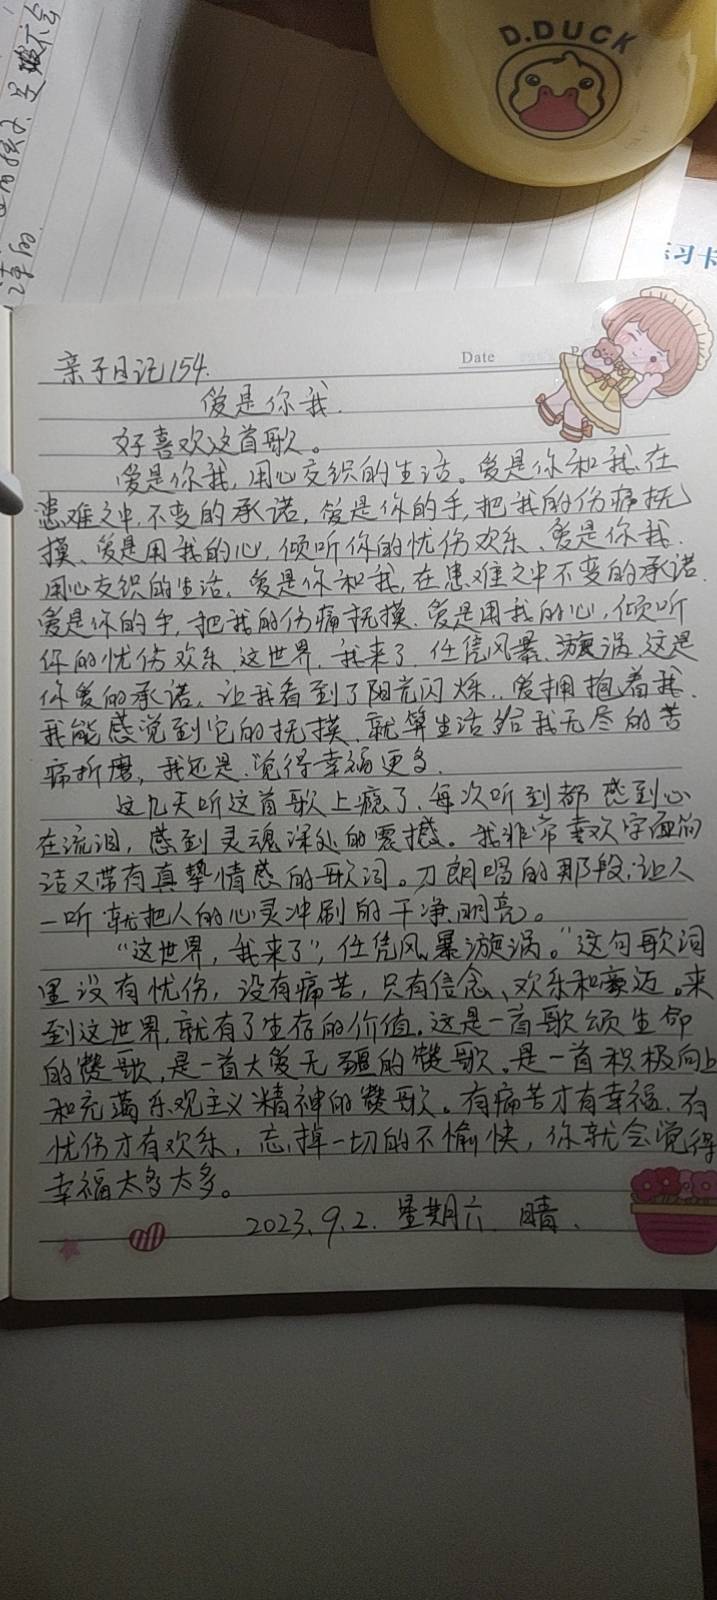 D.DUCK
习卡
Date
亲子日记154.
爱是你我.
好喜欢这首歌。
爱是你我,用心交织的生活。爱是你和我,在
患难之中,不变的承诺,爱是你的手,把我的伤痛抚
摸、爱是用我的心,倾听你的忧伤欢乐、爱是你我.
用心交织的生活、爱是你和我,在患难之中不变的承诺.
爱是你的手,把我的伤痛抚摸.爱是用我的心,倾听
你的忧伤欢乐.这世界,我来了,任凭风暴、漩涡.这是
你爱的承诺,让我看到了阳光闪烁..爱拥抱着我.
我能感觉到它的抚摸.就算生活给我无尽的苦
痛折磨,我还是.觉得幸福更多.
这几天听这首歌上瘾了,每次听到都感到心
在流泪,感到灵魂深处的震撼。我非常喜欢字面简
洁又带有真挚情感的歌词。刀郎唱的那段,让人
一听就把人的心灵冲刷的干净、明亮。
“这世界,我来了”,任凭风、暴漩涡。”这句歌词
里没有忧伤,没有痛苦,只有信念、欢乐和豪迈。来
到这世界,就有了生存的价值.这是一首歌颂生命
的赞歌,是一首大爱无疆的赞歌.是一首积极向上
和充满乐观主义精神的赞歌。有痛苦才有幸福.有
忧伤才有欢乐,忘掉一切的不愉快,你就会觉得
幸福太多太多。
2023.9.2.星期六.晴.